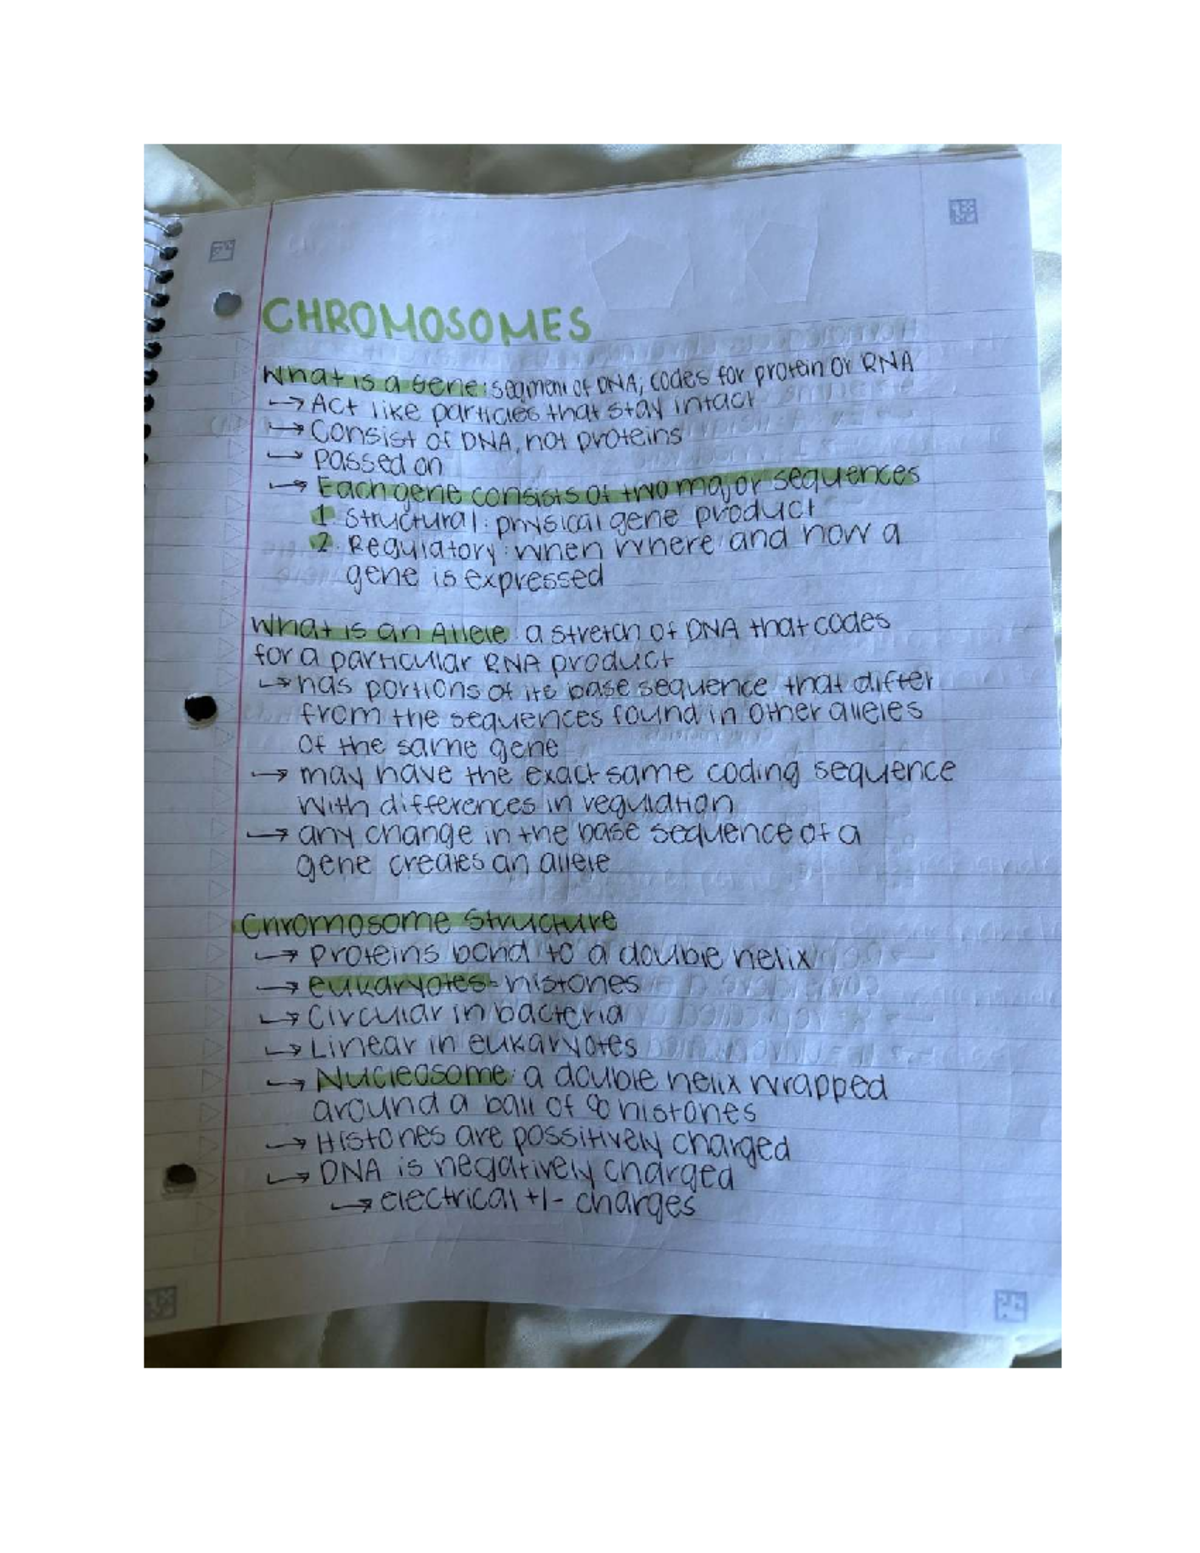 CHROMOSOMES
What is a Gene: segment of DNA, codes for protein or RNA
→ Act like particles that stay intact
→ Consist of DNA, not proteins
→ Passed on
→ Each gene consists of two major sequences
1. Structural: physical gene product
2. Regulatory: when where and how a
gene is expressed
What is an Allele: a stretch of DNA that codes
for a particular RNA product
→ has portions of its base sequence that differ
from the sequences found in other alleles
of the same gene
→ may have the exact same coding sequence
with differences in regulation
→ any change in the base sequence of a
gene creates an allele
Chromosome Structure
→ Proteins bond to a double helix
→ eukaryotes = histones
→ Circular in bacteria
→ Linear in eukaryotes
→ Nucleosome: a double helix wrapped
around a ball of 8 histones
→ Histones are possitively charged
→ DNA is negatively charged
→ electrical +/- charges